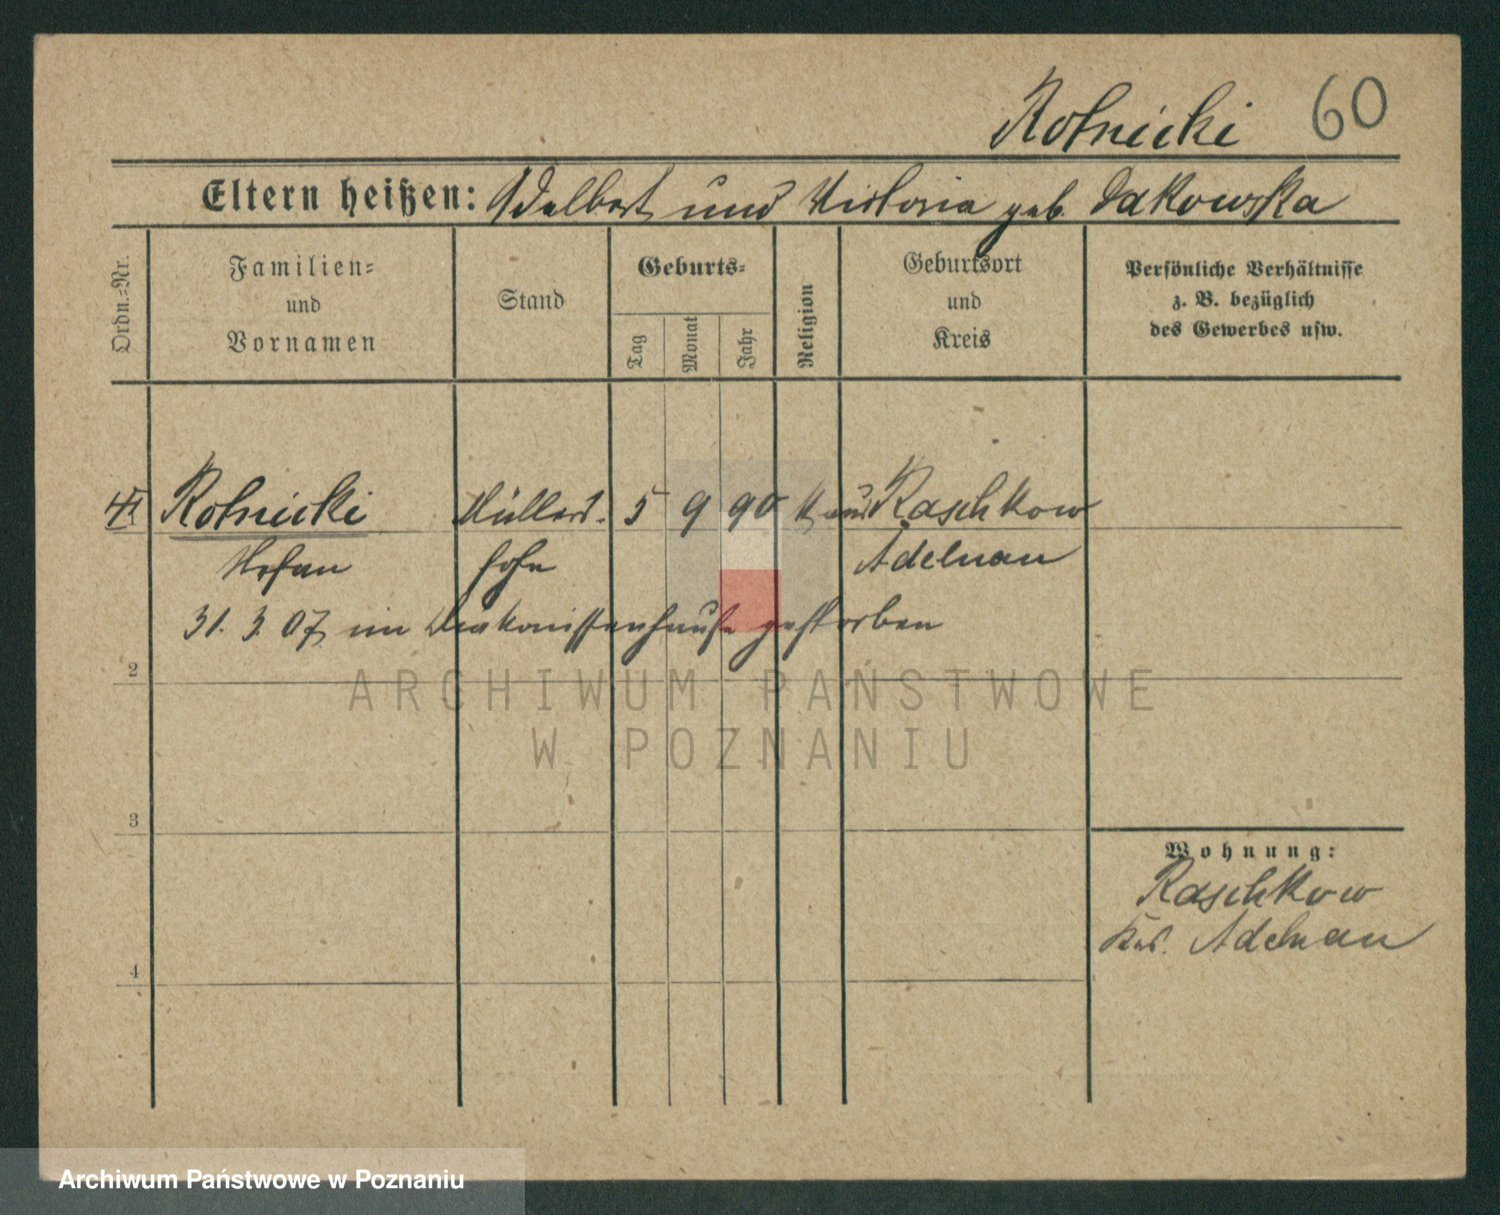 Rotnicki 60
Eltern heißen: Adalbert und Victoria geb. Dakowska
Ordn.=Nr.
Familien=
und
Vornamen
Stand
Geburts=
Tag
Monat
Jahr
Religion
Geburtsort
und
Kreis
Persönliche Verhältnisse
z. B. bezüglich
des Gewerbes usw.
Rotnicki Müller 5 9 90 K aus Raschkow
Stefan sohn Adelnau
31. 3. 07 im Diakonissenhause gestorben
2
3
4
Wohnung:
Raschkow
Adelnau
ARCHIWUM PAŃSTWOWE
W POZNANIU
Archiwum Państwowe w Poznaniu